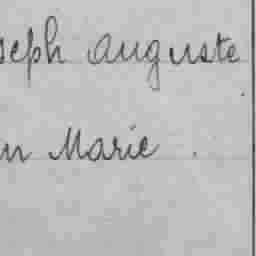 seph Auguste
n Marie.